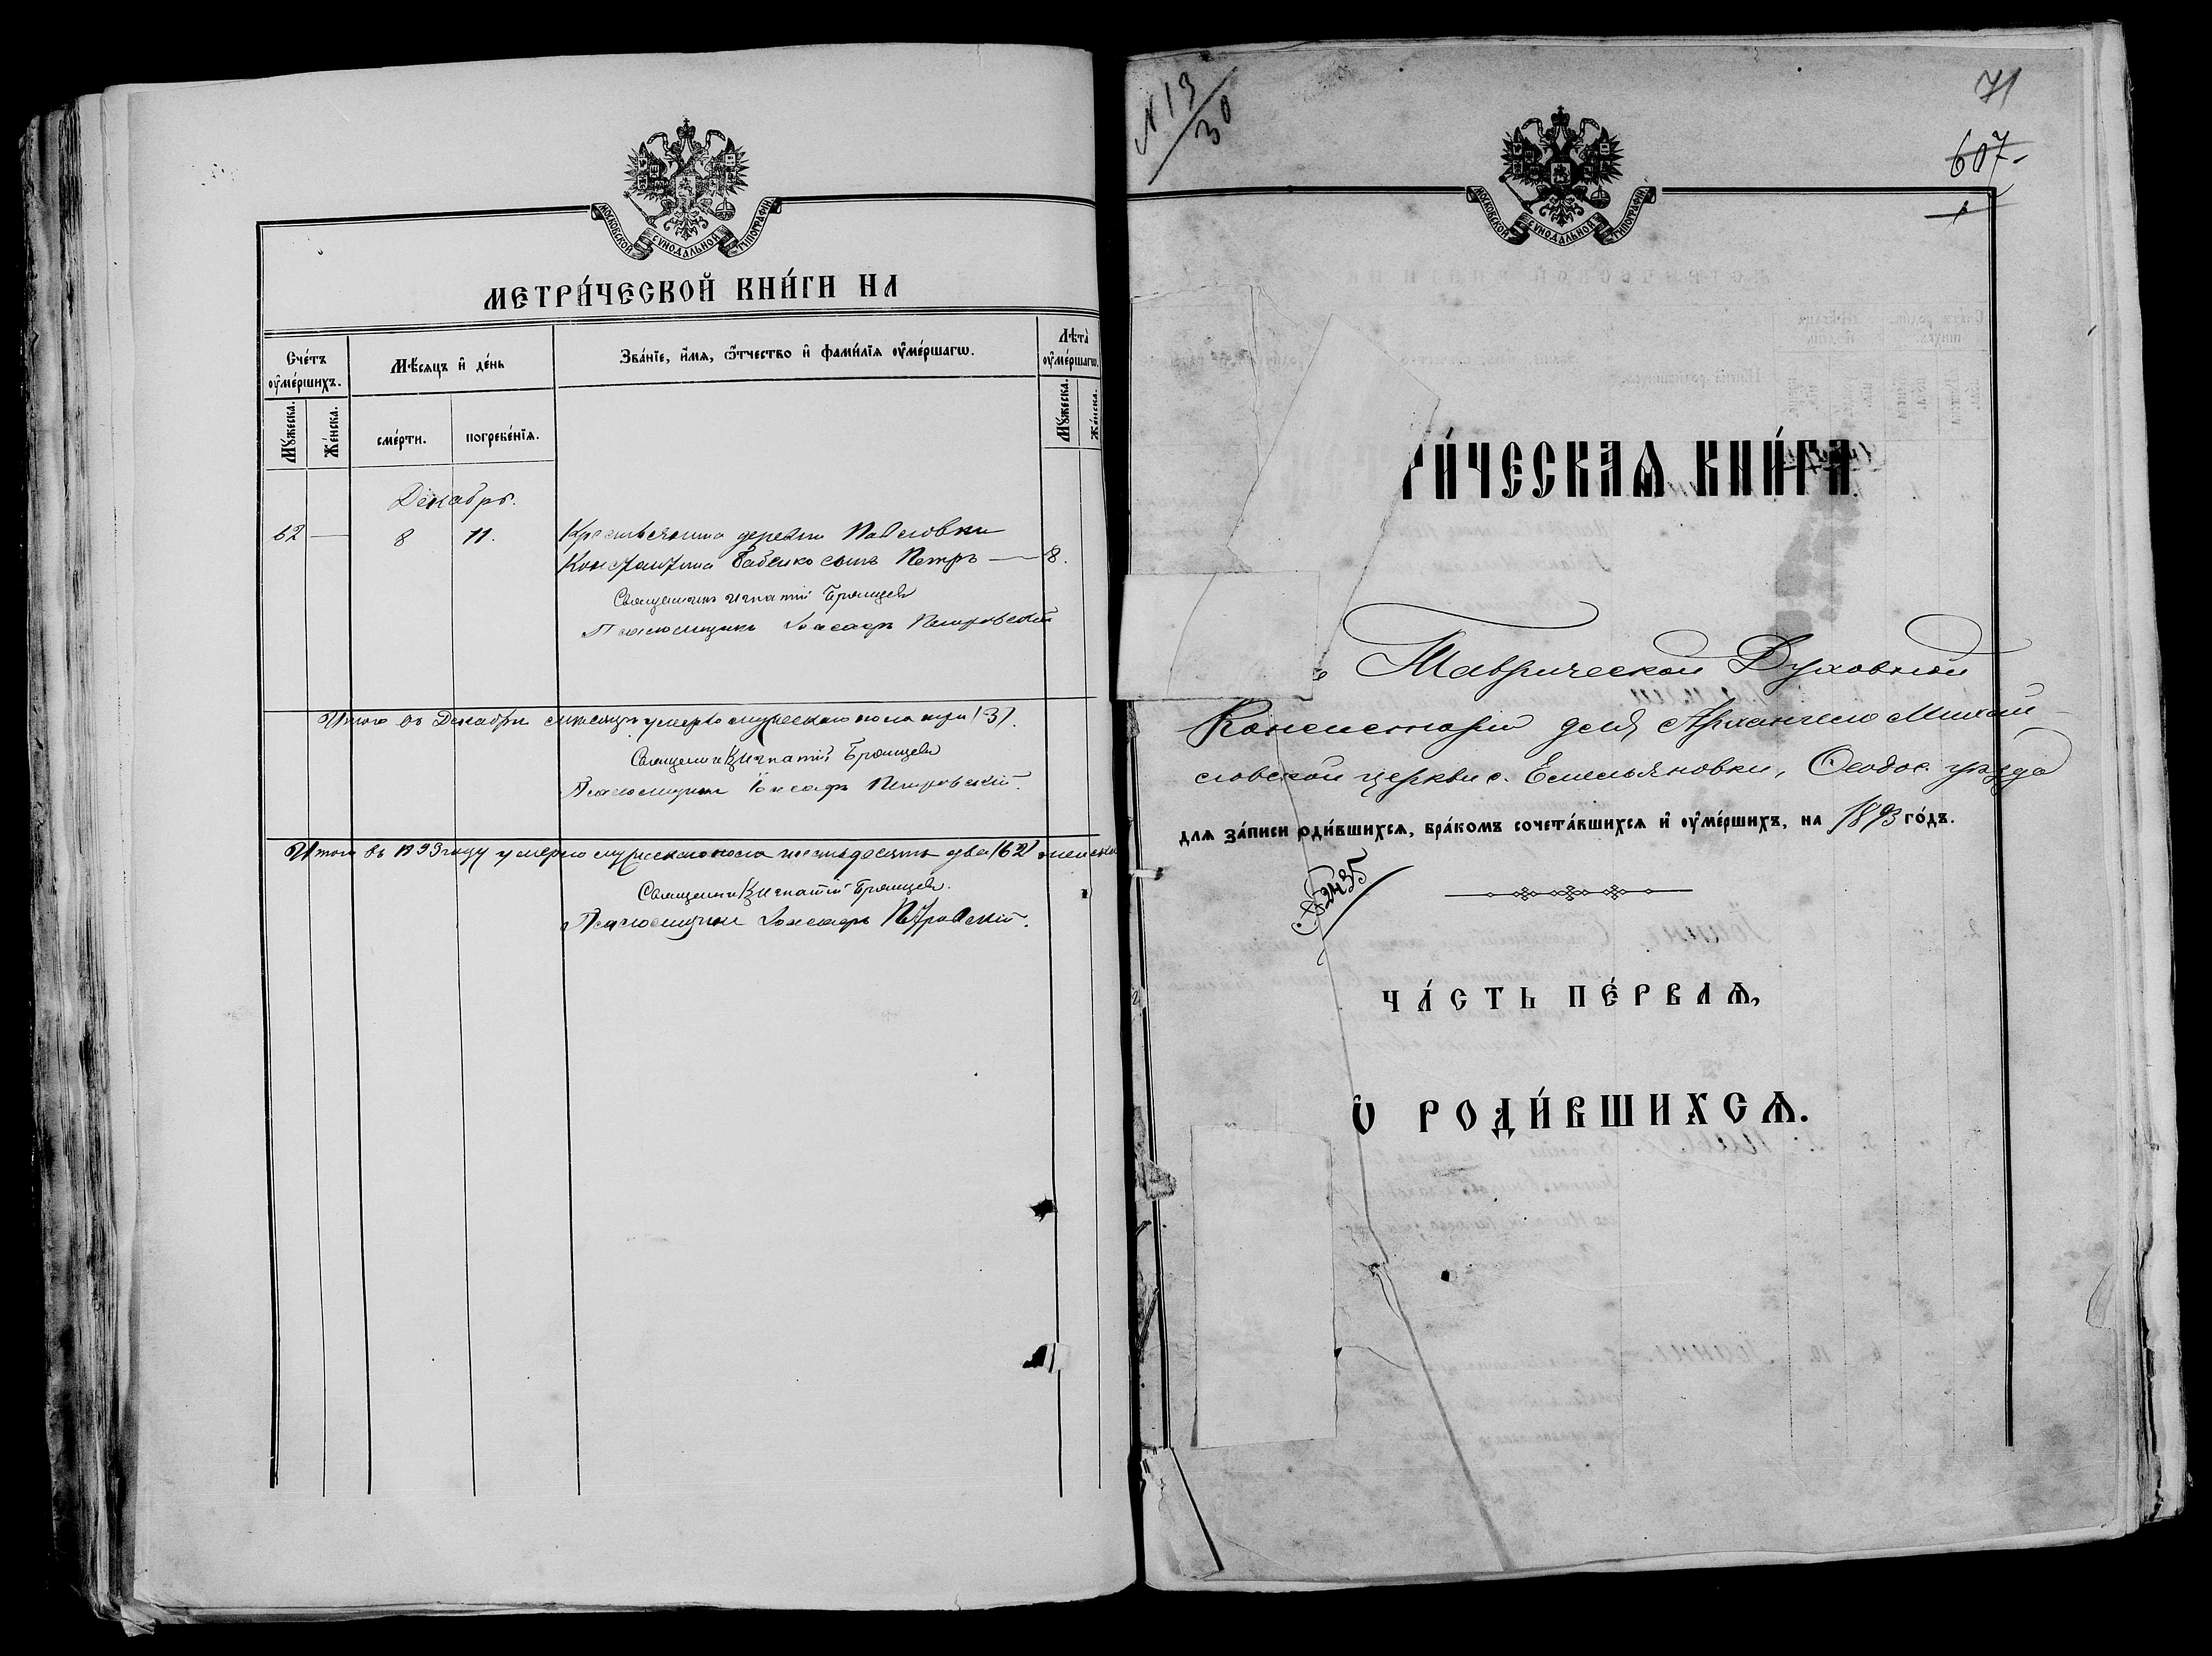 МОСКОВСКОЙ СѴНОДАЛЬНОЙ ТИПОГРАФІИ
МЕТРИ́ЧЕСКОЙ КНИ́ГИ НА
Сче́тъ оу҆ме́ршихъ.
Мѣ́сяцъ и҆ де́нь
Зва́нїе, и҆́мя, ѻ҆́тчество и҆ фами́лїя оу҆ме́ршагѡ.
Лѣта̀ оу҆ме́ршагѡ.
Мꙋ́жеска.
Же́нска.
сме́рти.
погребе́нїя.
Мꙋ́жеска.
Же́нска.
Декабрь.
62 — 8 11. Крестьянина деревни Павловки
Константина Бабенко сынъ Петръ — 8.
Священникъ Игнатій
Псаломщикъ Іоасафъ Петровскій
Итого въ Декабрѣ мѣсяцѣ умерло мужескаго пола три (3).
Священникъ Игнатій
Псаломщикъ Іоасафъ Петровскій.
Итого въ 1893 году умерло мужескаго пола шестьдесятъ два (62) женска
Священникъ Игнатій
Псаломщикъ Іоасафъ Петровскій.
N 13/30
71
607-
1
МОСКОВСКОЙ СѴНОДАЛЬНОЙ ТИПОГРАФІИ
РИ́ЧЕСКАѦ КНИ́ГА
Таврической Духовной
Консисторіи для Архангело Михаи-
ловской церкви с. Емельяновки, Ѳеодос. уѣзда
для за́писи роди́вшихсѧ, бра́комъ сочета́вшихсѧ и҆ оу҆ме́ршихъ, на 1893 го́дъ.
№ 2435
ЧА́СТЬ ПЕ́РВАѦ,
Ѡ҆ РОДИ́ВШИХСѦ.